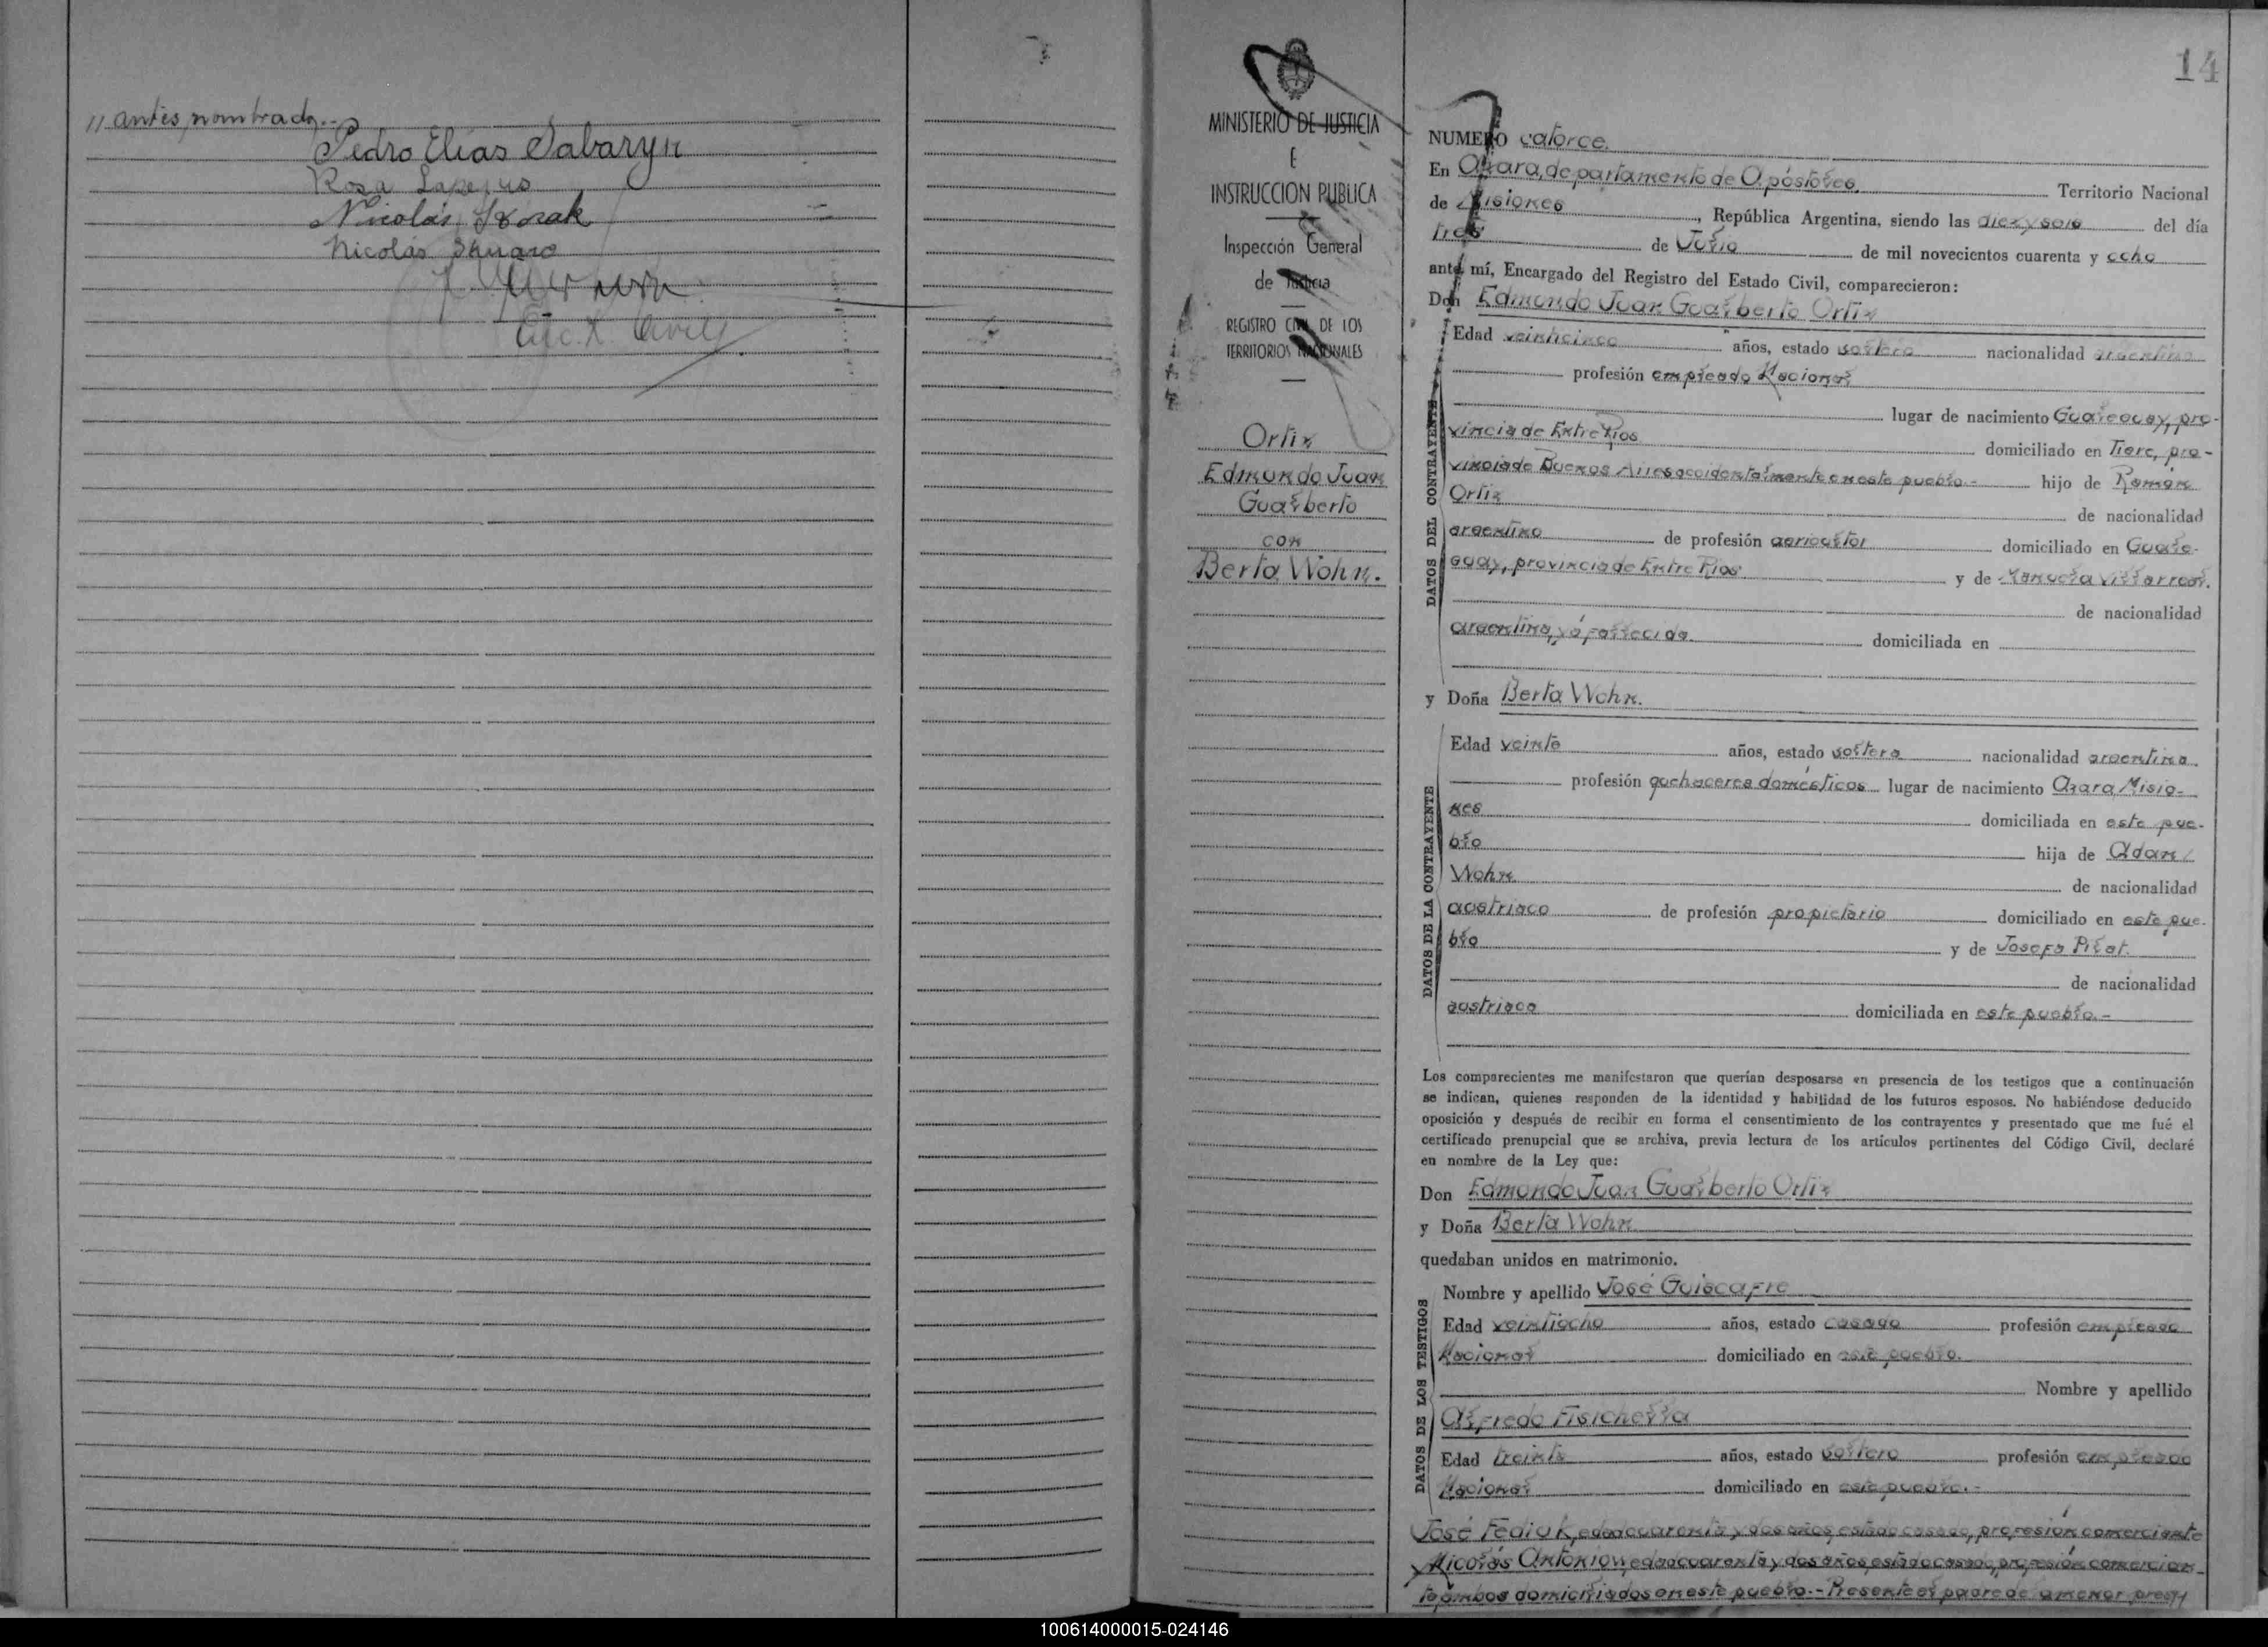 // antes nombrado.-
Pedro Elías Sabaryn
Rosa
Nicolás
Nicolás
14
MINISTERIO DE JUSTICIA
E
INSTRUCCION PUBLICA
Inspección General
de Justicia
REGISTRO CIVIL DE LOS
TERRITORIOS NACIONALES
Ortiz
Edmundo Juan
Gualberto
con
Berta Wohn.
NUMERO catorce.
En Azara, departamento de Apóstoles, Territorio Nacional
de Misiones, República Argentina, siendo las diez y seis del día
tres de Julio de mil novecientos cuarenta y ocho
ante mí, Encargado del Registro del Estado Civil, comparecieron:
Don Edmundo Juan Gualberto Ortiz
DATOS DEL CONTRAYENTE
Edad veinticinco años, estado soltero nacionalidad argentino
profesión empleado Nacional
lugar de nacimiento Gualeguay, pro-
vincia de Entre Rios domiciliado en Tigre, pro-
vincia de Buenos Aires accidentalmente en este pueblo.- hijo de Román
Ortiz de nacionalidad
argentino de profesión agricultor domiciliado en Guale-
guay, provincia de Entre Rios y de Manuela Villarreal.
de nacionalidad
argentina, yá fallecida. domiciliada en
y Doña Berta Wohn.
DATOS DE LA CONTRAYENTE
Edad veinte años, estado soltera nacionalidad argentina.
profesión quehaceres domésticos lugar de nacimiento Azara, Misio-
nes domiciliada en este pue-
blo hija de Adan
Wohn de nacionalidad
austriaco de profesión propietario domiciliado en este pue-
blo y de Josefa Pilat.
de nacionalidad
austriaca domiciliada en este pueblo.-
Los comparecientes me manifestaron que querían desposarse en presencia de los testigos que a continuación
se indican, quienes responden de la identidad y habilidad de los futuros esposos. No habiéndose deducido
oposición y después de recibir en forma el consentimiento de los contrayentes y presentado que me fué el
certificado prenupcial que se archiva, previa lectura de los artículos pertinentes del Código Civil, declaré
en nombre de la Ley que:
Don Edmundo Juan Gualberto Ortiz
y Doña Berta Wohn
quedaban unidos en matrimonio.
DATOS DE LOS TESTIGOS
Nombre y apellido José Guiscafre
Edad veintiocho años, estado casado profesión empleado
Nacional domiciliado en este pueblo.
Nombre y apellido
Alfredo Fisichella
Edad treinta años, estado soltero profesión empleado
Nacional domiciliado en este pueblo.-
José Fediuk, edad cuarenta y dos años, estado casado, profesión comerciante
y Nicolás Antoniow, edad cuarenta y dos años, estado casado, profesión comercian-
te, ambos domiciliados en este pueblo.- Presente el padre de la menor
100614000015-024146